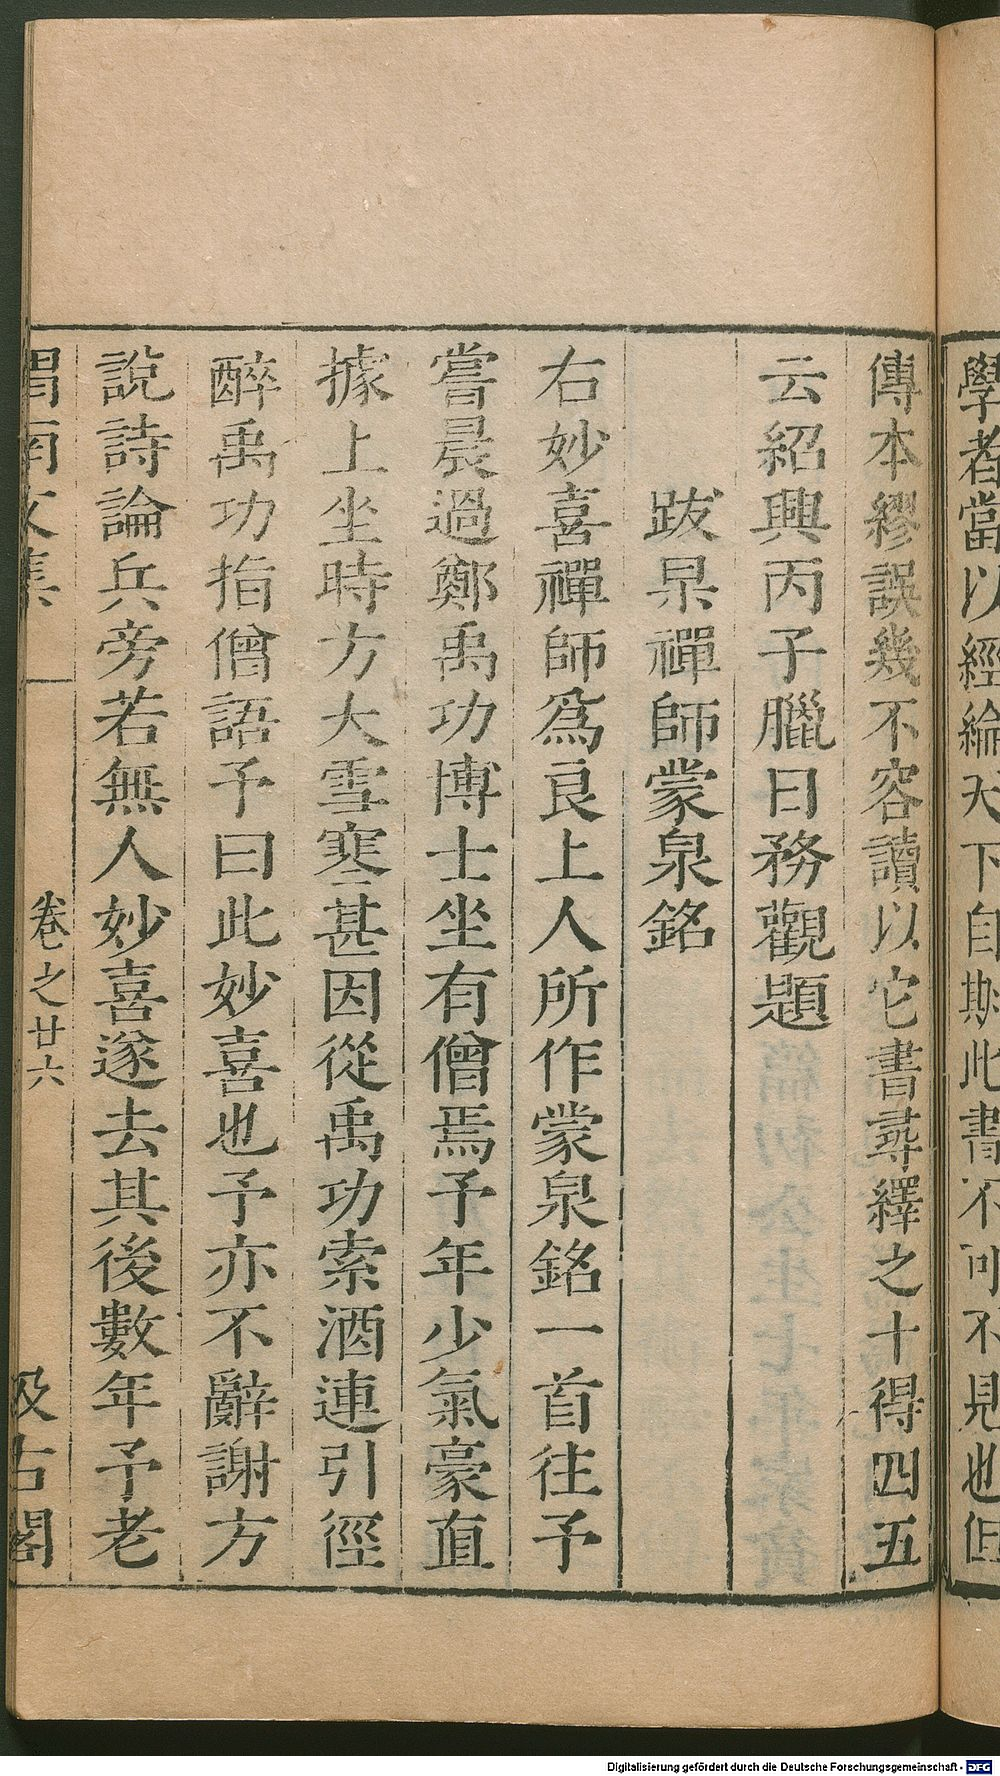 學者當以經綸天下自期此書不可不見也但
傳本繆誤幾不容讀以它書尋繹之十得四五
云紹興丙子臘日務觀題
跋杲禪師蒙泉銘
右妙喜禪師爲良上人所作蒙泉銘一首往予
嘗晨過鄭禹功博士坐有僧焉予年少氣豪直
據上坐時方大雪寒甚因從禹功索酒連引徑
醉禹功指僧語予曰此妙喜也予亦不辭謝方
說詩論兵旁若無人妙喜遂去其後數年予老
渭南文集 卷之廿六 汲古閣
Digitalisierung gefördert durch die Deutsche Forschungsgemeinschaft - DFG